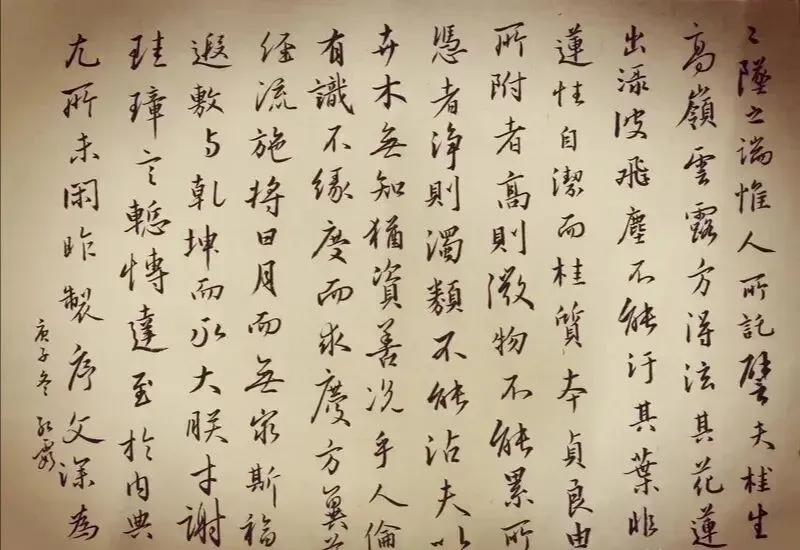 〻墜之端惟人所託譬夫桂生
高嶺雲露方得泫其花蓮
出淥波飛塵不能汙其葉非
蓮性自潔而桂質本貞良由
所附者高則微物不能累所
憑者淨則濁類不能沾夫以
卉木無知猶資善況乎人倫
有識不緣慶而求慶方冀茲
經流施將日月而無窮斯福
遐敷与乾坤而永大朕才謝
珪璋言慙博達至於內典
尤所未閑昨製序文深為
庚子冬